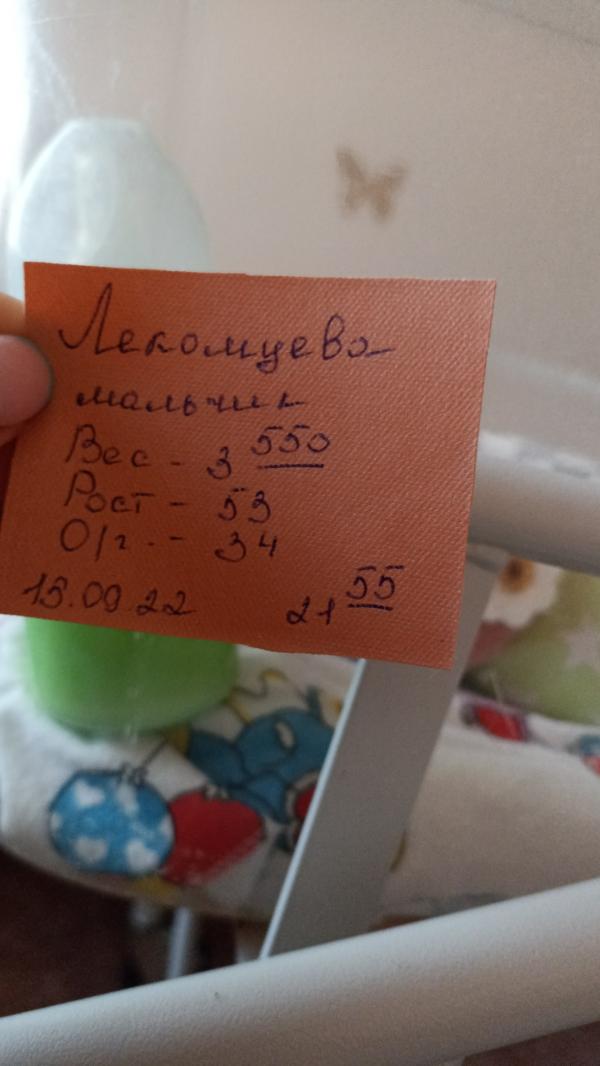 Лекомцева
мальчик
Вес - 3 550
Рост - 53
О/г. - 34
13.09.22 21 55